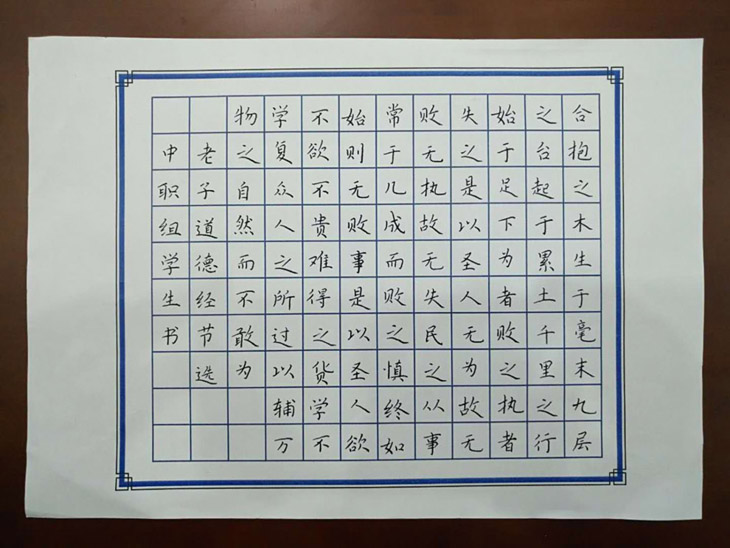 合抱之木生于毫末九层
之台起于累土千里之行
始于足下为者败之执者
失之是以圣人无为故无
败无执故无失民之从事
常于几成而败之慎终如
始则无败事是以圣人欲
不欲不贵难得之货学不
学复众人之所过以辅万
物之自然而不敢为
老子道德经节选
中职组学生书